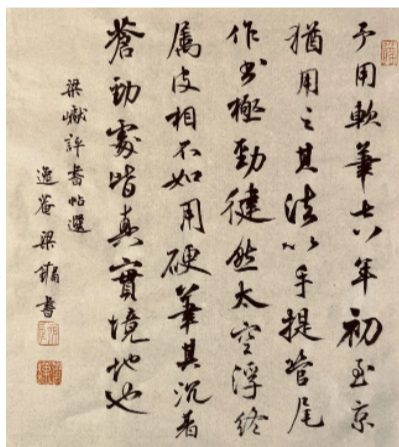 予用軟筆七八年初至京
猶用之其法以手提管尾
作書極勁健然太空浮終
属皮相不如用硬筆其沉着
蒼勁處皆真實境地也
梁巘評書帖選
逸菴梁鏞書